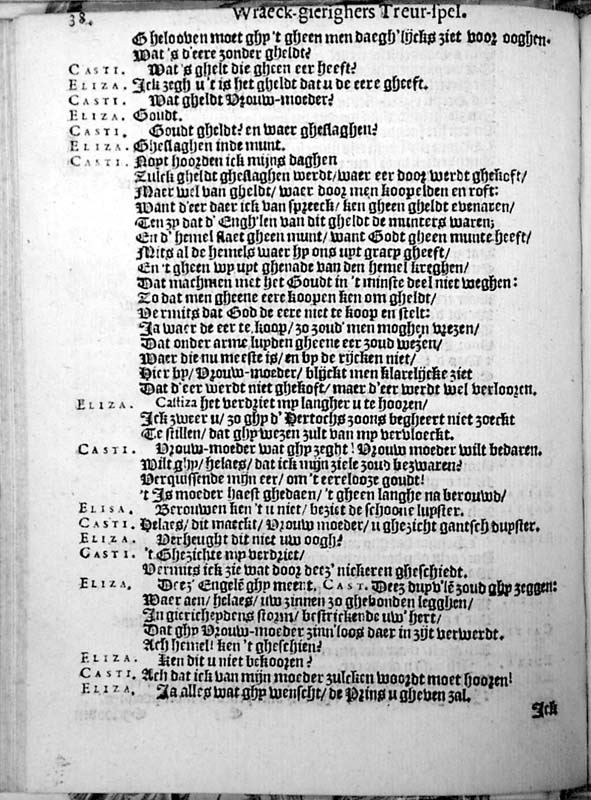 38.
Wraeck-gierighers Treur-spel.
Ghelooven moet ghy 't gheen men daegh'lijcks ziet voor ooghen.
Wat 's d'eere zonder gheldt?
CASTI. Wat 's ghelt die gheen eer heeft?
ELIZA. Ick zegh u 't is het gheldt dat u de eere gheeft.
CASTI. Wat gheldt Vrouw-moeder?
ELIZA. Goudt.
CASTI. Goudt gheldt? en waer gheslaghen?
ELIZA. Gheslaghen inde munt.
CASTI. Noyt hoorden ick mijns daghen
Zulck gheldt gheslaghen werdt/ waer eer door werdt ghekoft/
Maer wel van gheldt/ waer door men koopelden en roft:
Want d'eer daer ick van spreeck/ ken gheen gheldt evenaren/
Ten zy dat d' Engh'len van dit gheldt de munters waren;
En d' hemel slaet gheen munt/ want Godt gheen munte heeft/
Mits al de hemels waer hy ons uyt gracy gheeft/
En 't gheen wy uyt ghenade van den hemel kreghen/
Dat machmen met het Goudt in 't minste deel niet weghen:
Zo dat men gheene eere koopen ken om gheldt/
Vermits dat God de eere niet te koop en stelt:
Ja waer de eer te koop/ zo zoud' men moghen vrezen/
Dat onder arme luyden gheene eer zoud wezen/
Waer die nu meeste is/ en by de rijcken niet/
Hier by/ Vrouw-moeder/ blijckt men klarelijcke ziet
Dat d'eer werdt niet ghekoft/ maer d'eer werdt wel verlooren.
ELIZA. Castiza het verdriet my langher u te hooren/
Ick zweer u/ zo ghy d' Hertochs zoons begheert niet zoeckt
Te stillen/ dat ghy wezen zult van my vervloeckt.
CASTI. Vrouw-moeder wat ghy zeght! Vrouw moeder wilt bedaren.
Wilt ghy/ helaes/ dat ick mijn ziele zoud bezwaren?
Verquissende mijn eer/ om 't eerelooze goudt!
't Is moeder haest ghedaen/ 't gheen langhe na berouwd/
ELISA. Berouwen ken 't u niet/ beziet de schoone luyster.
CASTI. Helaes/ dit maeckt/ Vrouw moeder/ u ghezicht gantsch duyster.
ELIZA. Verheught dit niet uw oogh?
CASTI. 't Ghezichte my verdriet/
Vermits ick zie wat door deez' nickeren gheschiedt.
ELIZA. Deez' Engelē ghy meent, CAST. Deez duyv'lē zoud ghy zeggen:
Waer aen/ helaes/ uw zinnen zo ghebonden legghen/
In giericheydens storm/ bestrickende uw' hert/
Dat ghy Vrouw-moeder zinn'loos daer in zijt verwerdt.
Ach hemel! ken 't gheschien?
ELIZA. Ken dit u niet bekooren?
CASTI. Ach dat ick van mijn moeder zulcken woordt moet hooren!
ELIZA. Ja alles wat ghy wenscht/ de Prins u gheven zal.
Ick